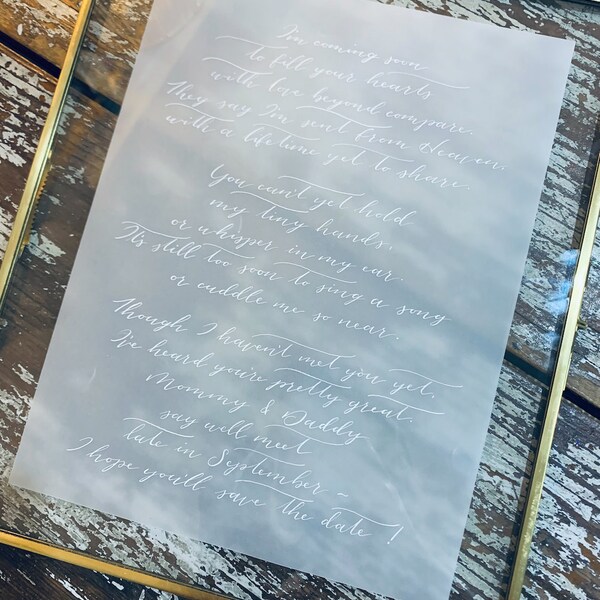 I'm coming soon
to fill your hearts
with love beyond compare.
They say I'm sent from Heaven,
with a lifetime yet to share.
You can't yet hold
my tiny hands,
or whisper in my ear.
It's still too soon to sing a song
or cuddle me so near.
Though I haven't met you yet,
I've heard you're pretty great.
Mommy & Daddy
say we'll meet
late in September -
I hope you'll save the date!